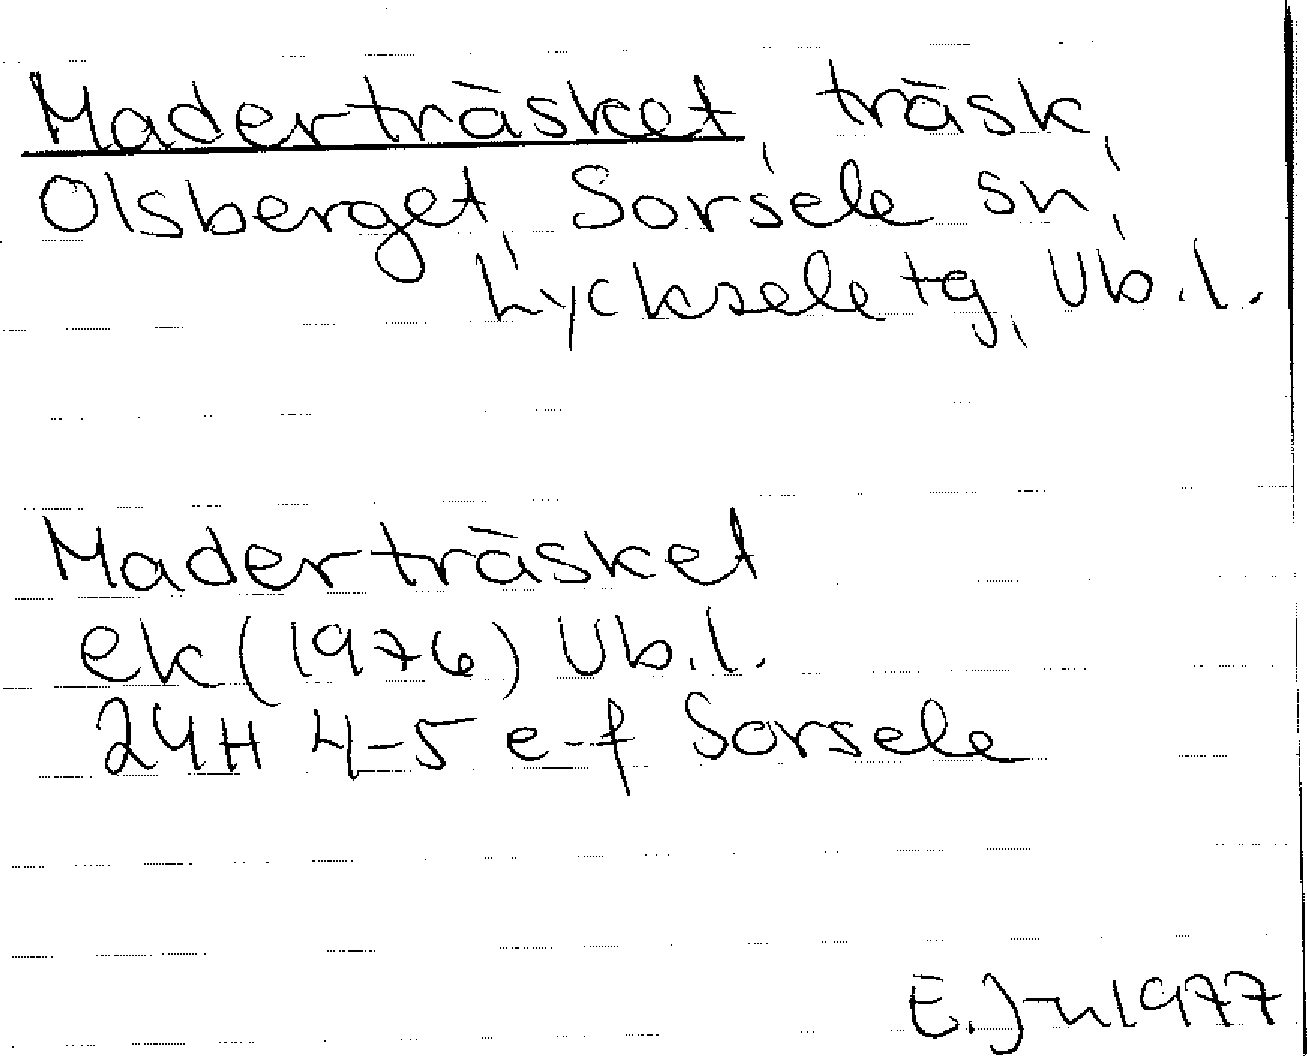 Maderträsket, träsk,
Olsberget, Sorsele sn,
Lycksele tg, Vb.l.
Maderträsket
ek (1976) Vb.l.
24H 4-5 e-f Sorsele
E. J-n 1977